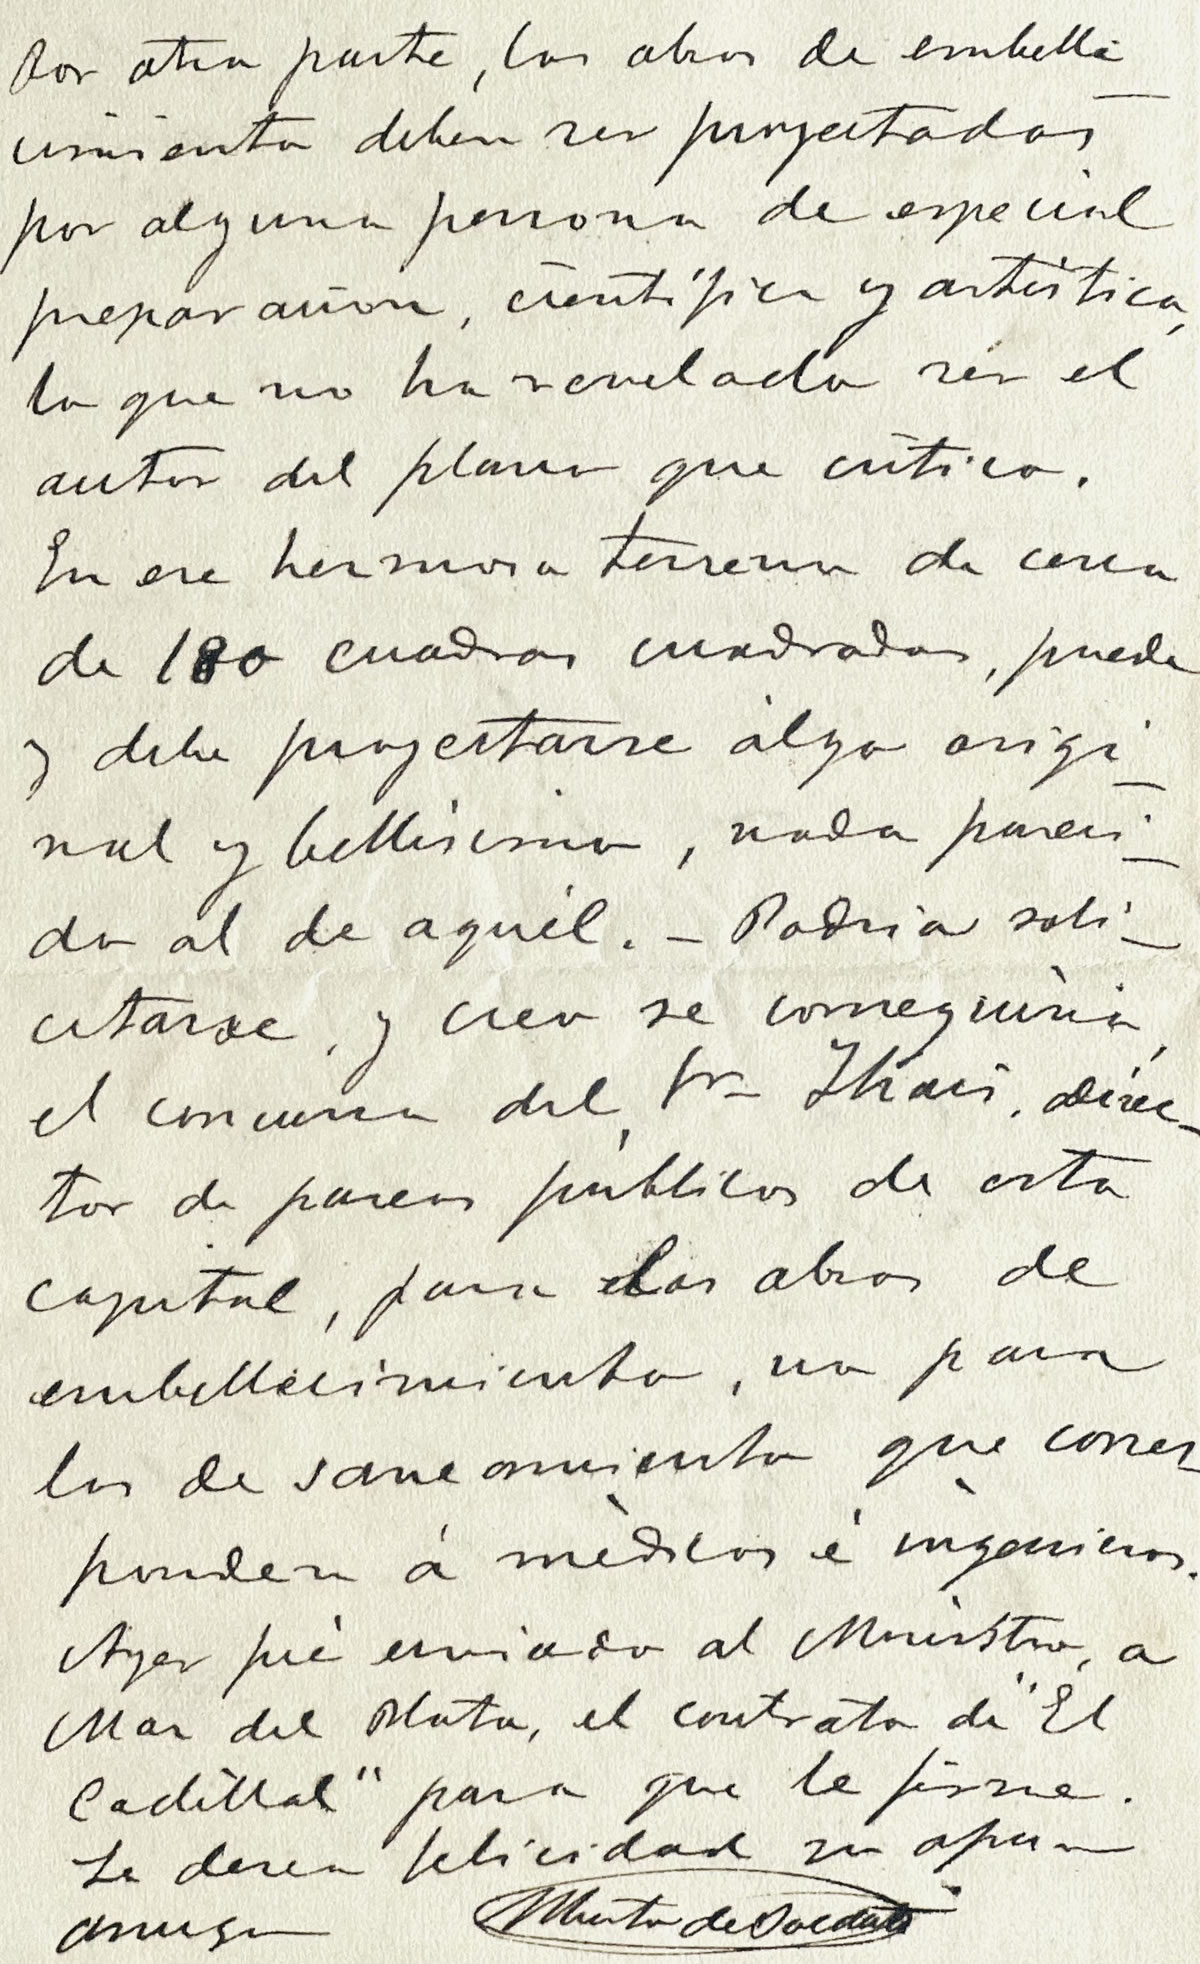 Por otra parte, las obras de embelle
cimiento deben ser proyectadas
por alguna persona de especial
preparacion, científica y artística,
lo que no ha revelado ser el
autor del plano que critico.
En ese hermoso terreno de cerca
de 180 cuadras cuadradas, puede
y debe proyectarse algo origi_
nal y bellísimo, nada pareci_
do al de aquél. _ Podria soli_
citarse, y creo se conseguiria,
el concurso del, Sr_ Thais, direc_
tor de paseos públicos de esta
capital, para las obras de
embellecimiento, no para
las de saneamiento que corres_
ponden á médicos é ingenieros.
Ayer fué enviado al Ministro, a
Mar del Plata, el contrato de "El
Cadillal" para que le firme.
Le desea felicidad su afmo
amigo Alberto de Soldati